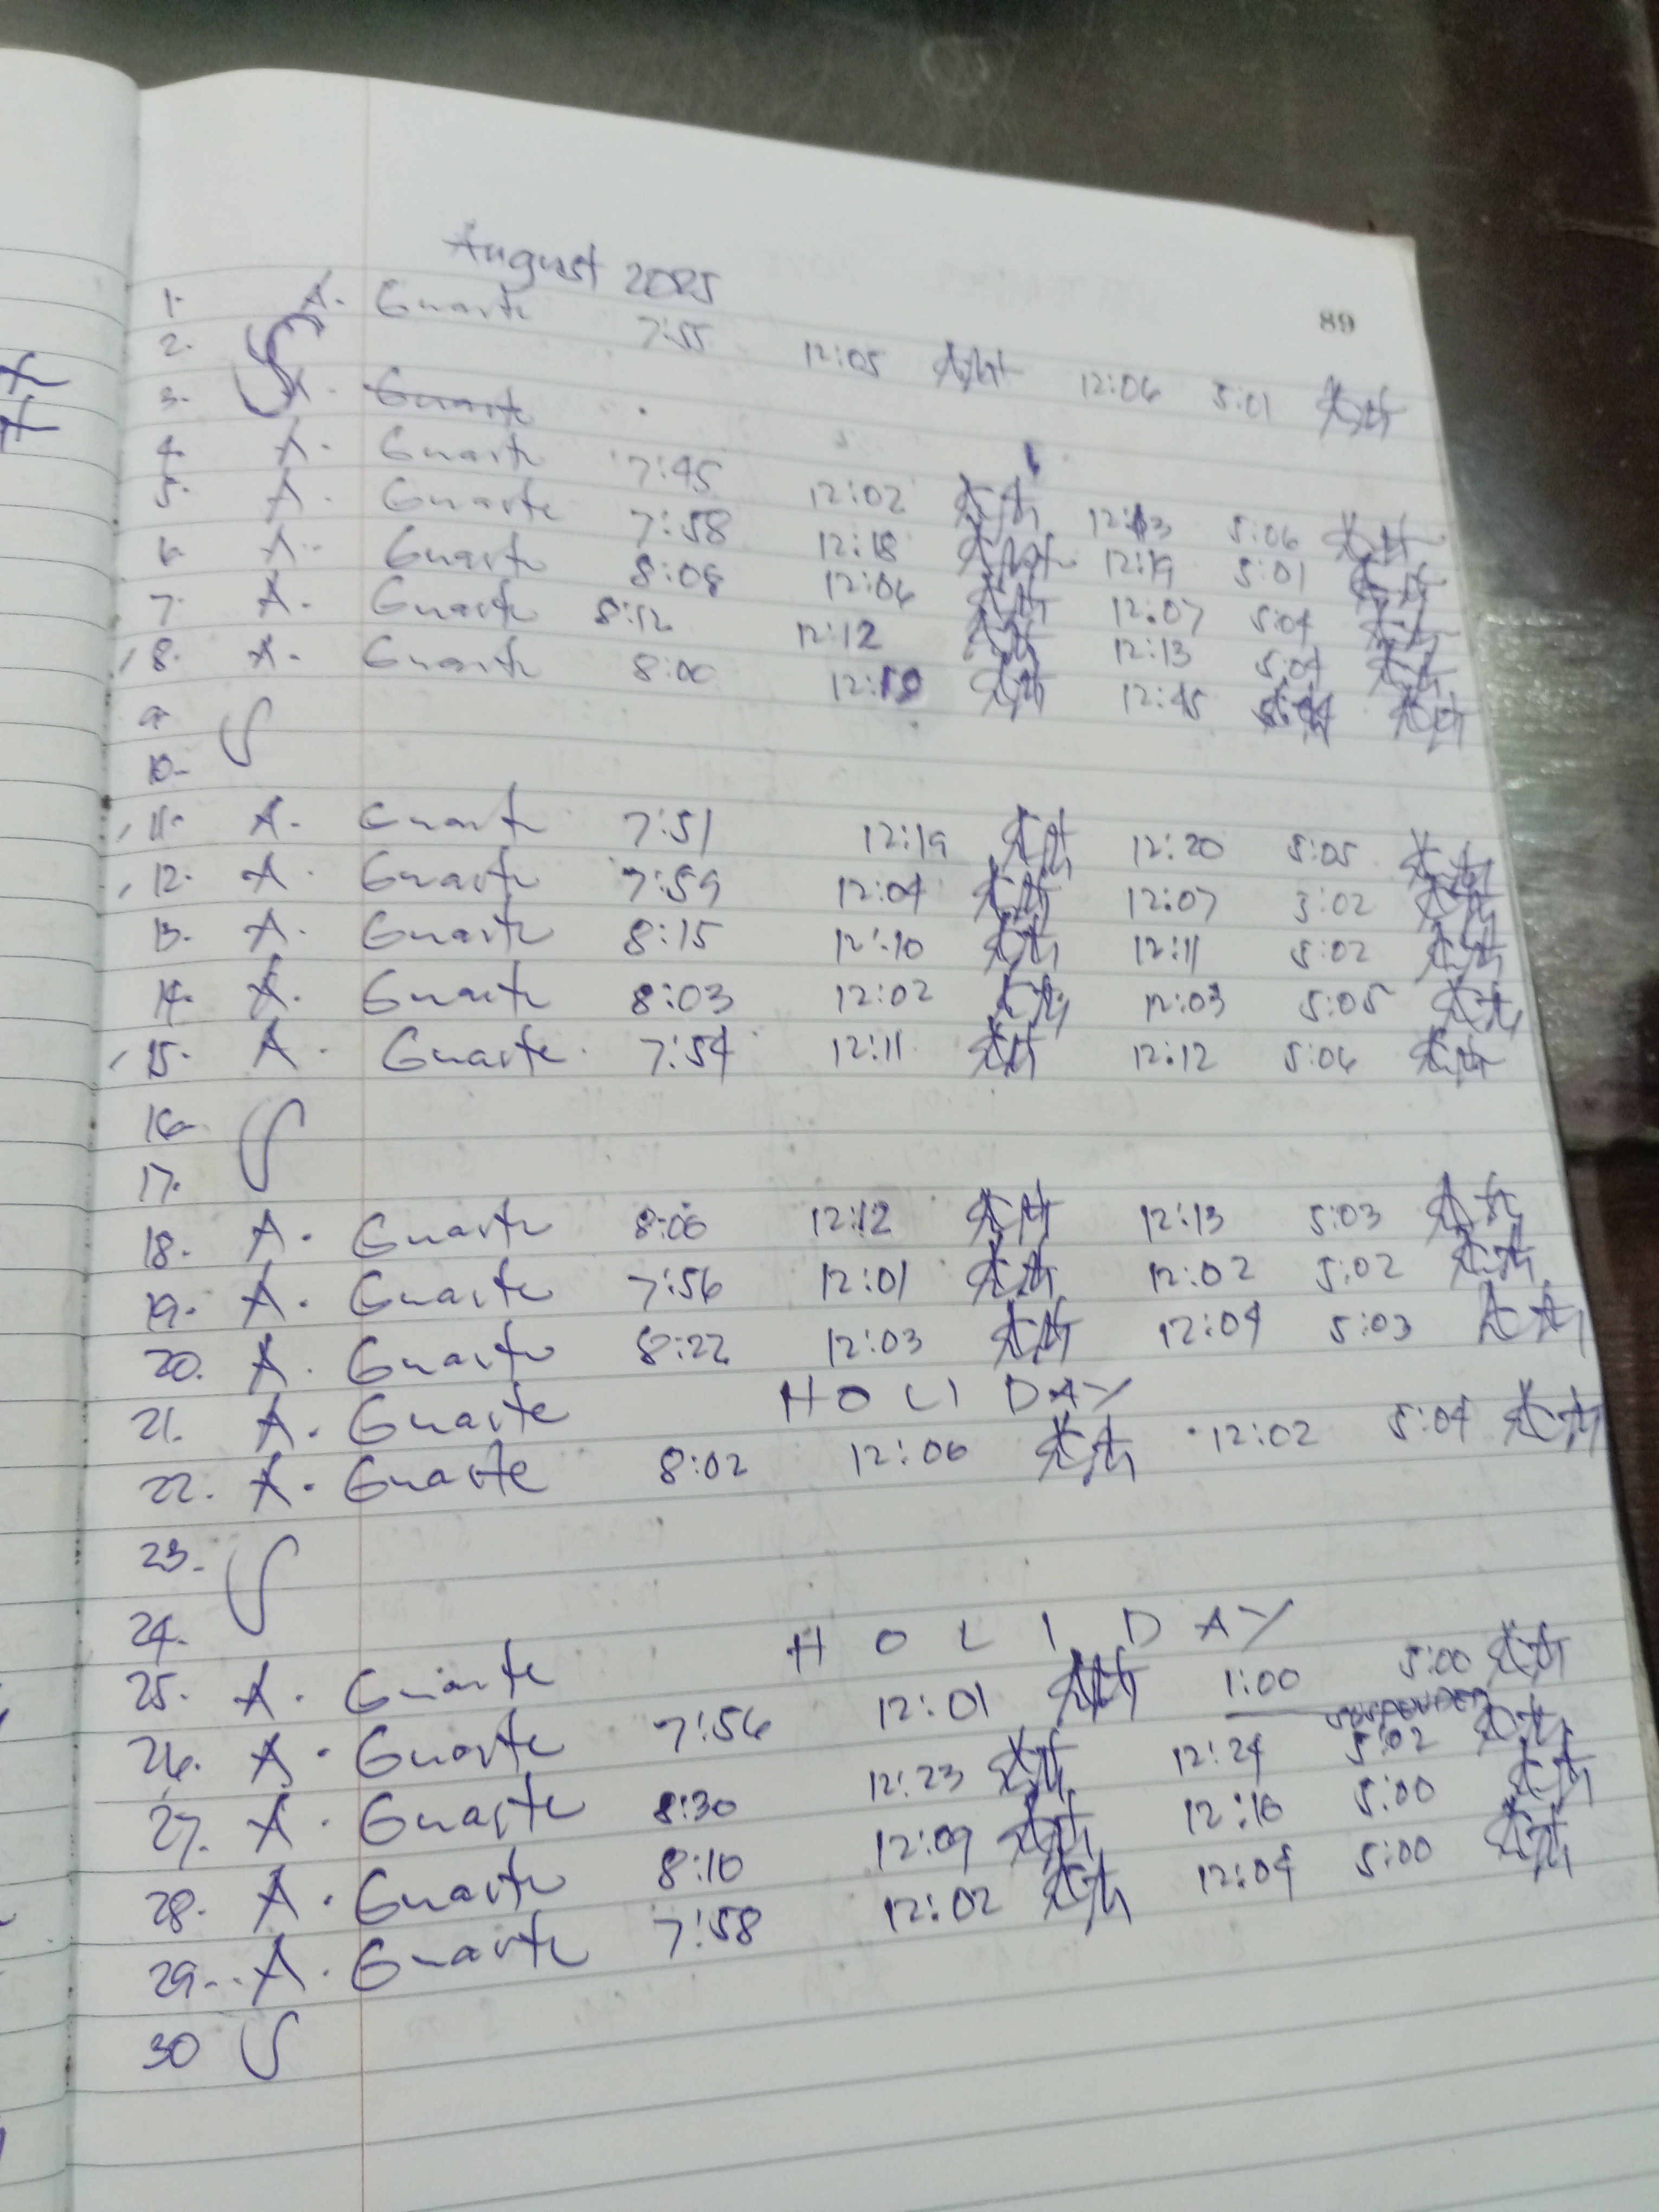 August 2025
89
1. A. Guarte 7:55 12:05 12:06 5:01
2.
3. A. Guarte
4. A. Guarte 7:45 12:02 12:13 5:06
5. A. Guarte 7:58 12:18 12:19 5:01
6. A. Guarte 8:08 12:06 12:07 5:04
7. A. Guarte 8:12 12:12 12:13 5:04
8. A. Guarte 8:00 12:45
9.
10-
11. A. Guarte 7:51 12:19 12:20 5:05
12. A. Guarte 7:59 12:04 12:07 5:02
13. A. Guarte 8:15 12:10 12:11 5:02
14. A. Guarte 8:03 12:02 12:03 5:05
15. A. Guarte 7:54 12:11 12:12 5:06
16-
17.
18. A. Guarte 12:12 12:13 5:03
19. A. Guarte 7:56 12:01 12:02 5:02
20. A. Guarte 8:22 12:03 12:04 5:03
21. A. Guarte HOLIDAY
22. A. Guarte 8:02 12:06 12:02 5:04
23.
24.
25. A. Guarte HOLIDAY
26. A. Guarte 7:56 12:01 1:00 5:00
SUSPENDED
27. A. Guarte 8:30 12:23 12:24 5:02
28. A. Guarte 8:10 12:09 12:10 5:00
29. A. Guarte 7:58 12:02 12:04 5:00
30